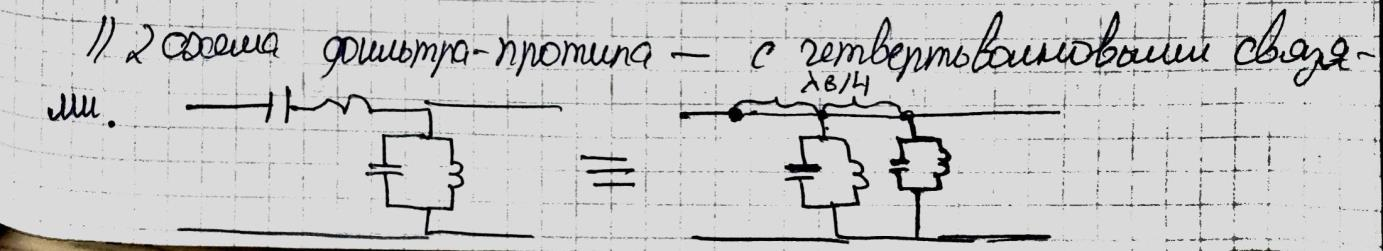 1) 2 схема фильтра-протипа — с четвертьволновыми связя-
λв/4
ми.